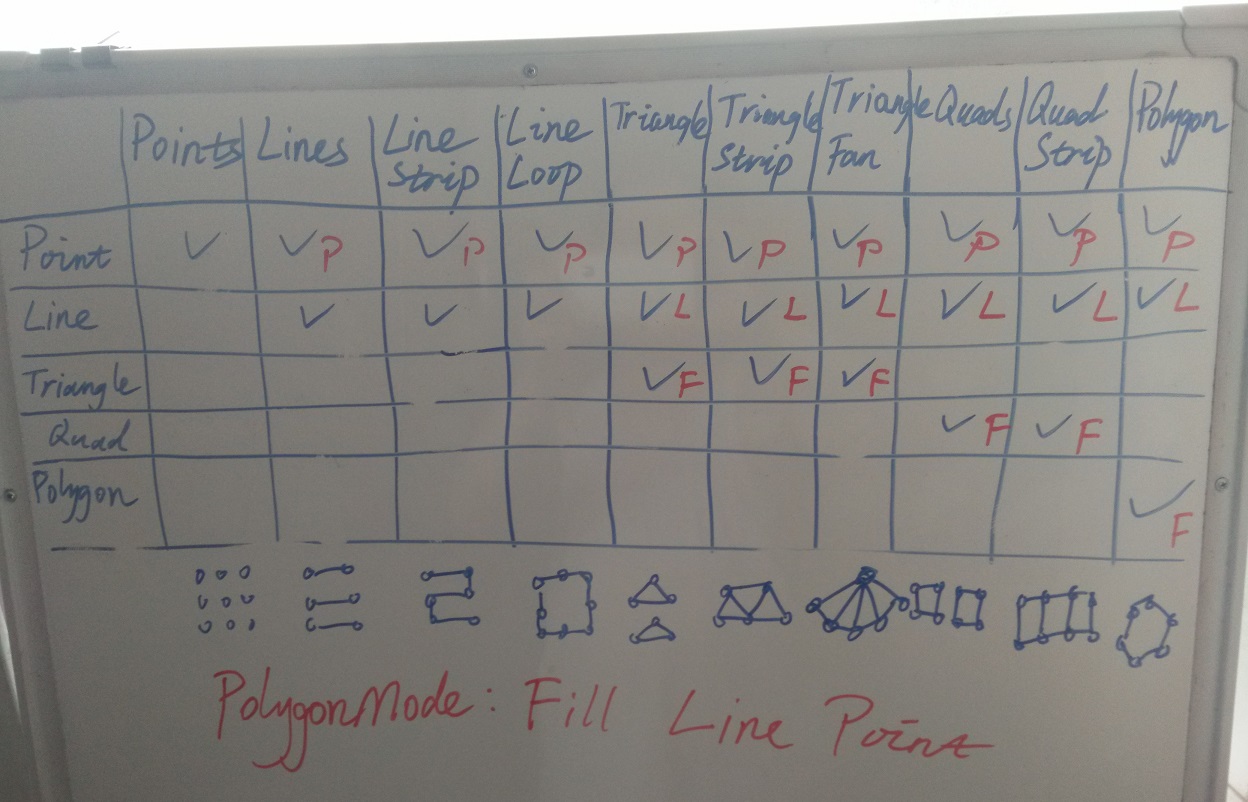 Points Lines Line Strip Line Loop Triangle Triangle Strip Triangle Fan Quads Quad Strip Polygon
Point ✓ ✓P ✓P ✓P ✓P ✓P ✓P ✓P ✓P ✓P
Line ✓ ✓ ✓ ✓L ✓L ✓L ✓L ✓L ✓L
Triangle ✓F ✓F ✓F
Quad ✓F ✓F
Polygon ✓F
PolygonMode: Fill Line Point